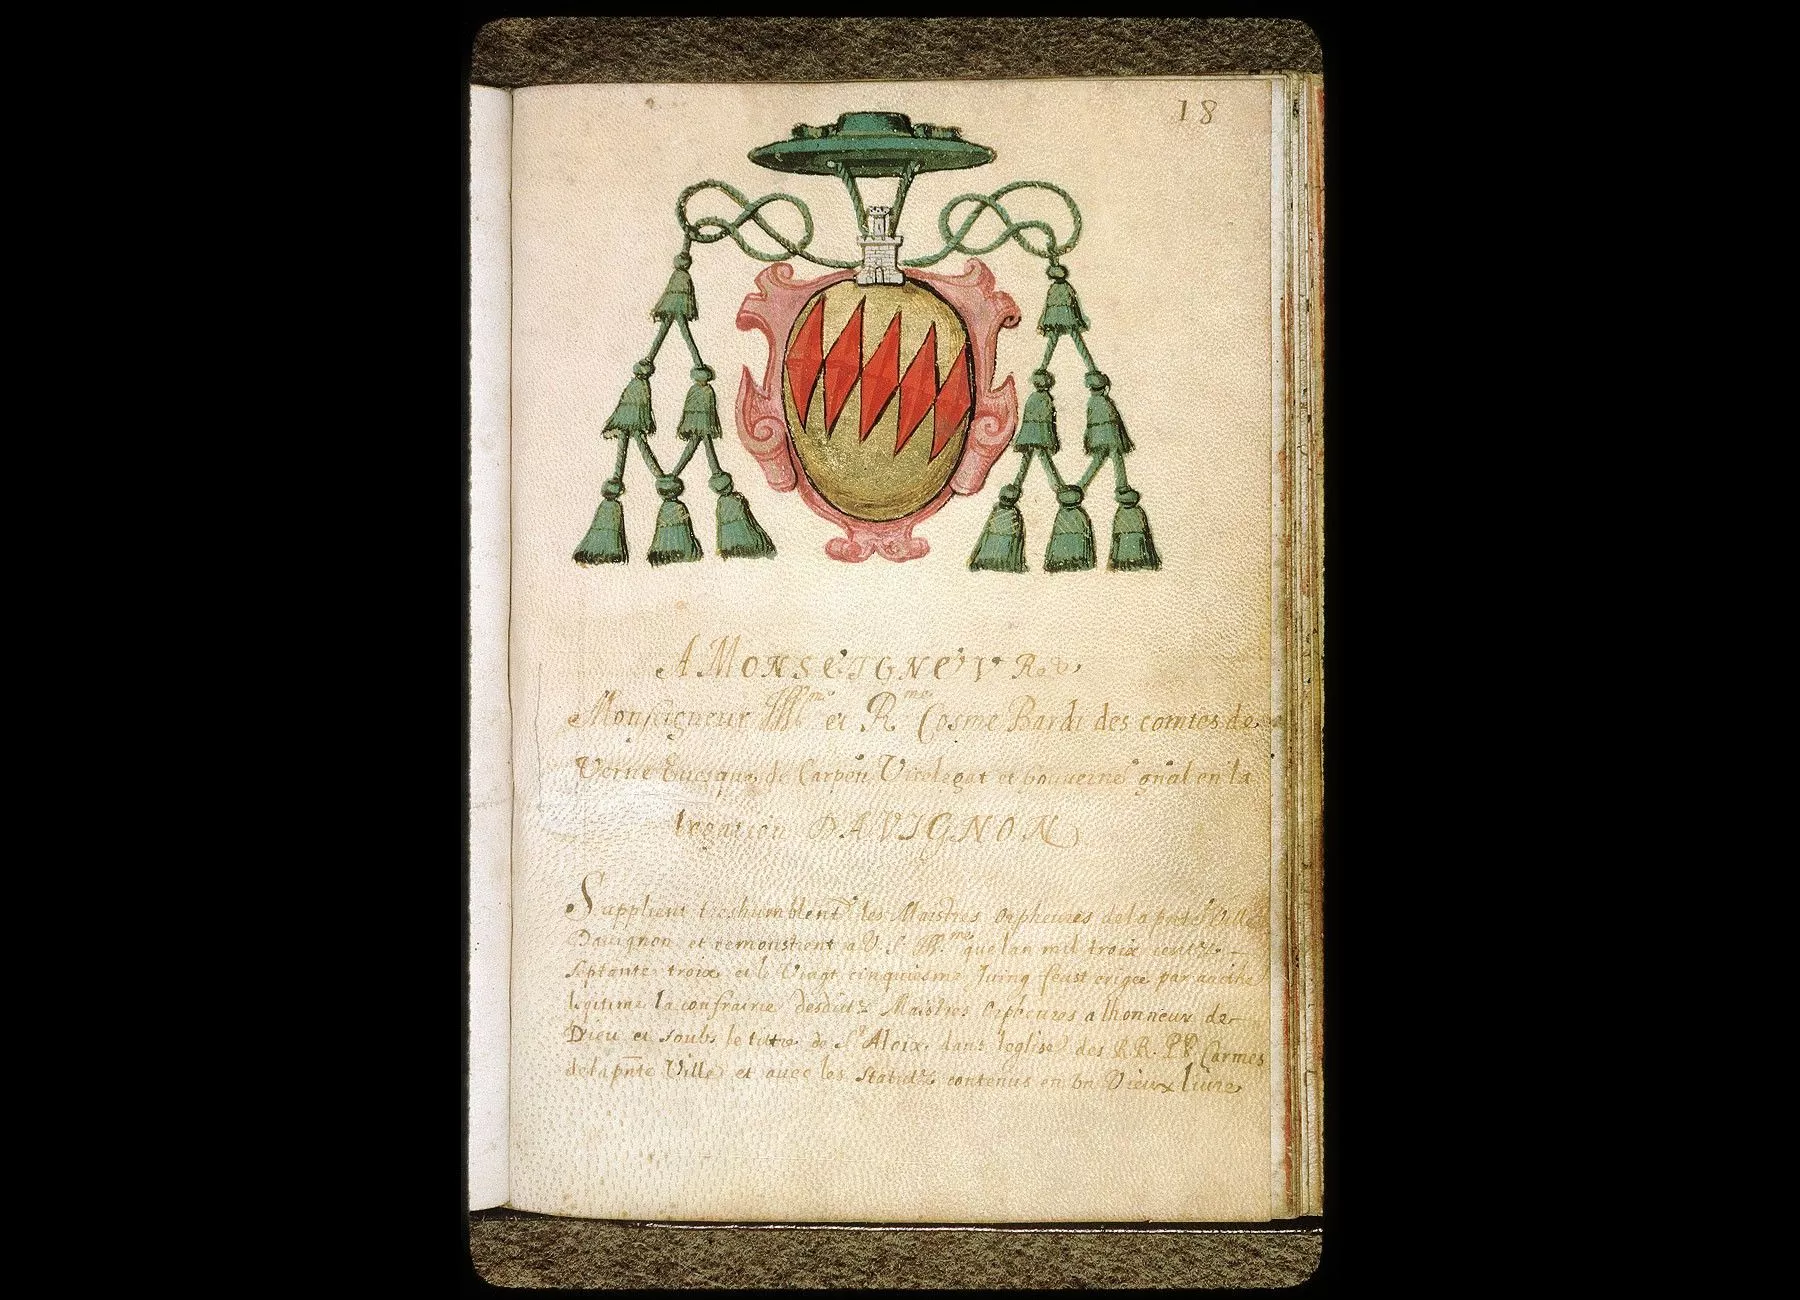 18
A MONSEIGNEUR Rev
Monseigneur Illme et Rme Cosme Bardi des comtes de
Verne Euesque de Carpen Vicelegat et Gouverne gnal en la
legation DAVIGNON
Supplient treshumblent les Maistres orpheures de la pnte Ville
Dauignon et remonstrent a V. S. Illme que lan mil troix centz
septante troix et le Vingt cinquiesme Juing feust erigee par
legitime la confrairie desdictz Maistres Orpheures a lhonneur de
Dieu et soubs le tittre de St Aloix dans leglise des RR. PP. Carmes
de la pnte Ville et auec les Statutz contenus en un Vieux liure